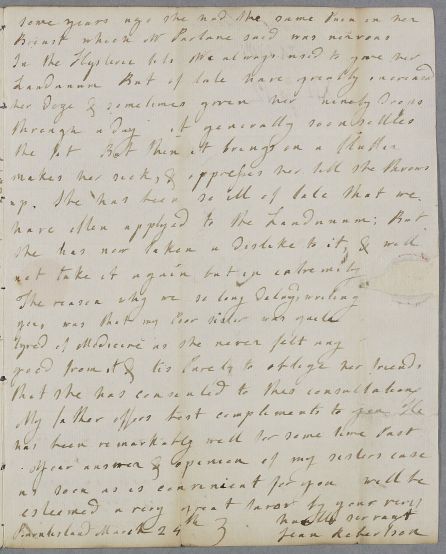 some years ago she had the same Pain in her
Breast which Mr Parlane said was nervous
In the Hysteric fits We always used to give her
Laudanum But of late have greatly increased
her Doze & sometimes given her ninety Drops
through a day it generally soon settles
the fit But then it brings on a
makes her sick, & oppresses her till she throws
up. She has been so ill of late that we
have often applyed to the Laudanum; But
she has now taken a Dislike to it, & will
not take it again but in extremity
The reason why we so long Delayd writing
you, was that my Poor sister was quite
tyred of Medicine as she never felt any
good from it & tis Purely to oblige her friends
that she has consented to this consultation
My father offers best complements to you He
has been remarkably well for some time Past
Your answer & openion of my sisters case
as soon as is convenient for you will be
esteemed a very great favor by your very
humble servant
Burntisland March 24th Jean Robertson